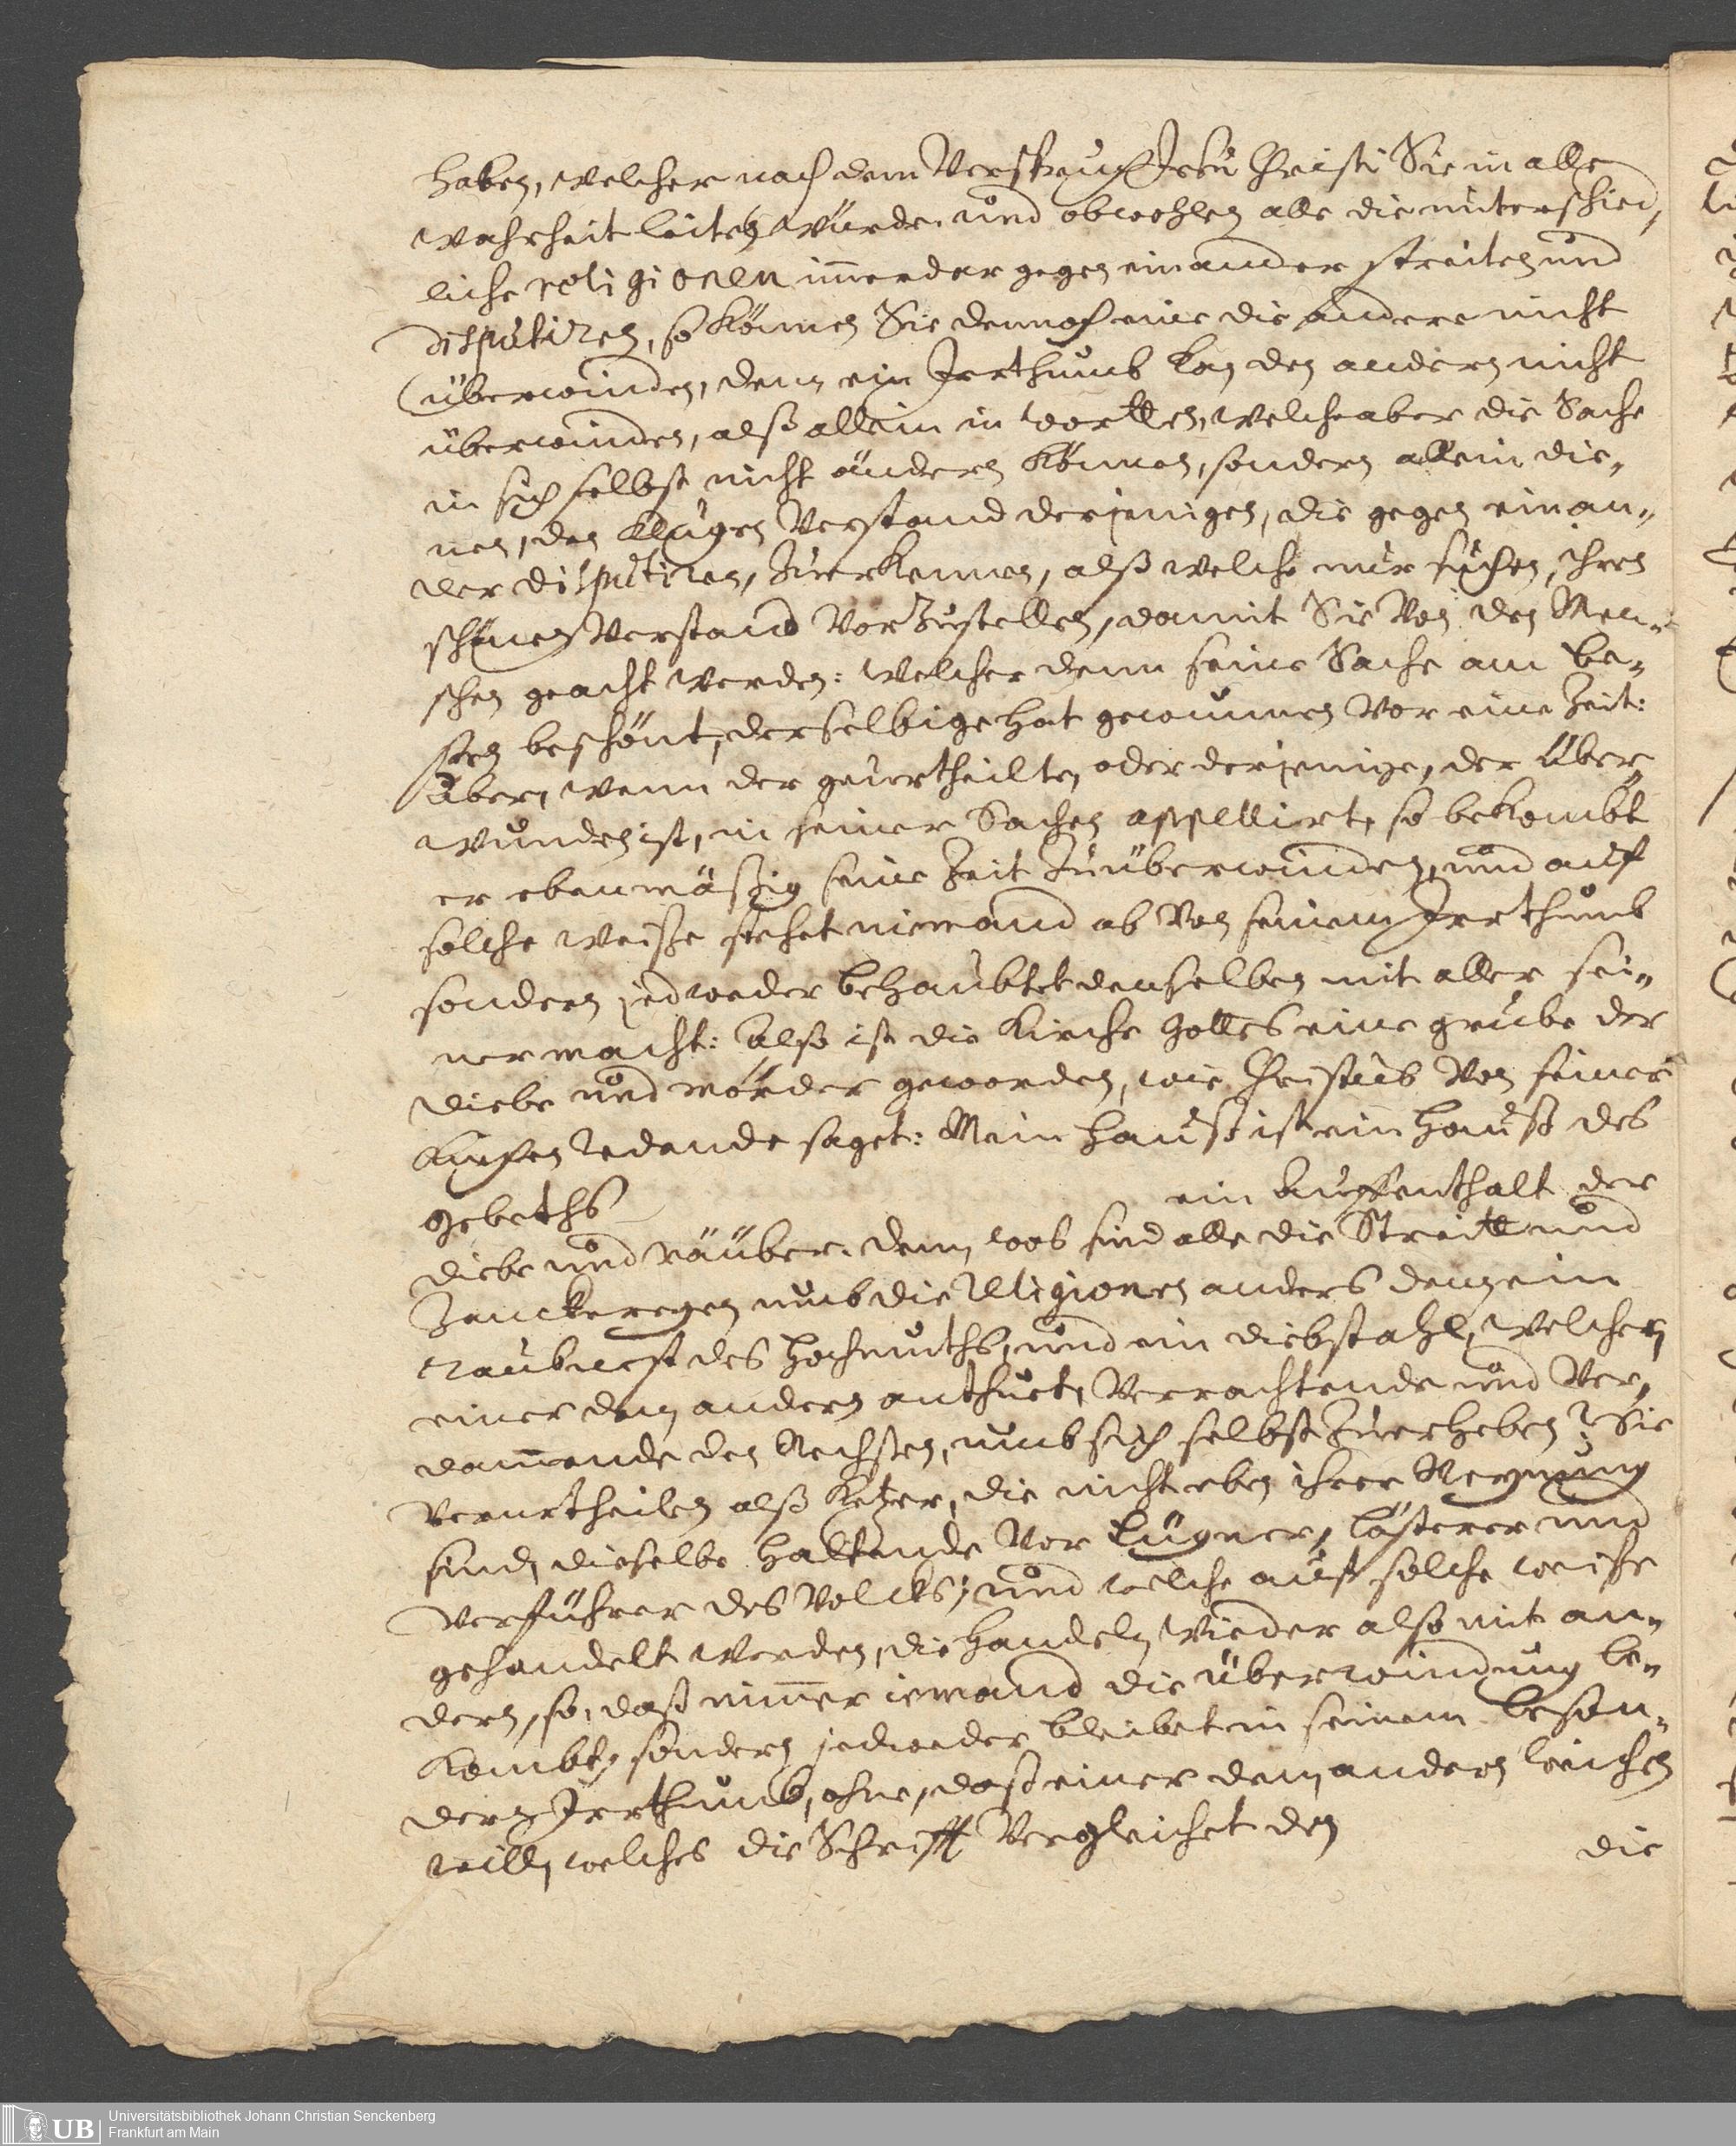 haben, welcher nach dem Verspruch Jesu Christi Sie in alle
wahrheit leiten würde. und obwohlen alle die unterschied,
liche religionen im̅erdar gegen einander streiten und
disputiren, so können Sie dennoch eine die andere nicht
überwinden, denn ein Irrthumb kan den andern nicht
überwinden, alß allein in wortten, welche aber die Sache
in sich selbst nicht ändern können, sondern allein die-
nen, den klugen Verstand derjenigen, die gegen einan-
der disputiren, zuerkennen, alß welche nur suchen, ihren
schönen Verstand vorzustellen, damit Sie von den Men-
schen geacht werden: welcher denn seine Sache am be-
sten beschönt, derselbige hat gewonnen vor eine Zeit:
Aber, wenn der geurtheilte, oder derjenige, der über,
wunden ist, in seiner Sachen appellirt, so bekombt
er ebenmäßig seine Zeit zuüberwinden, und auf
solche weiße stehet niemand ab von seinem Irrthumb
sondern jedweder behaubtet denselben mit aller sei-
ner macht: Also ist die Kirche Gottes eine grube der
diebe und mörder geworden, wie Christus von seiner
Kirchen redende saget: Mein Hauß ist ein Hauß des
Gebeths
ein Auffenthalt der
diebe und räuber. denn was sind alle die Streitt und
Zanckereyen umb die Religionen anders denn ein
raubnest des Hochmuths, und ein diebstahl, welchen
einer dem andern anthuet, Verrachtende und Ver,
dam̅ende den Nechsten, umb sich selbst zuerheben? Sie
verurtheilen alß Ketzer, die nicht eben ihrer Meynung
sind, dieselbe haltende vor Lügner, lästerer und
verführer des Volcks; und welche auf solche weise
gehandelt werden, die handeln wieder also mit an-
dern, so, daß nim̅er iemand die überwindung be-
kombt, sondern jedweder bleibet in seinem beson-
dern Irrthumb, ohne, daß einer dem andern weichen
will, welches die Schrifft Vergleichet den
die
Universitätsbibliothek Johann Christian Senckenberg
Frankfurt am Main
UB